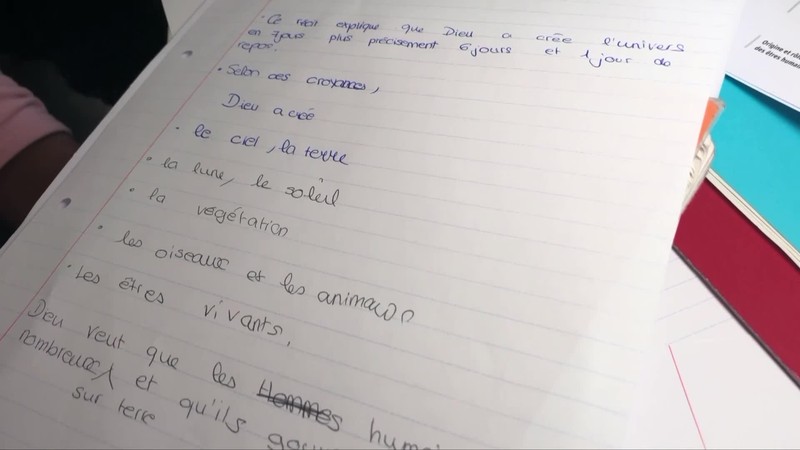 • Ce récit explique que Dieu a crée l'univers
en 7jours plus précisement 6jours et 1jour de
repos.
• Selon ces croyances,
Dieu a créé
• le ciel, la terre
• la lune, le soleil
• la végétation
• les oiseaux et les animaux
• Les êtres vivants.
Deu veut que les humai
nombreux, et qu'ils gou
sur terre
Origine et
des êtres humai